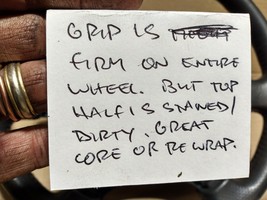 GRIP IS
FIRM ON ENTIRE
WHEEL. BUT TOP
HALF IS STAINED/
DIRTY. GREAT
CORE OR REWRAP.